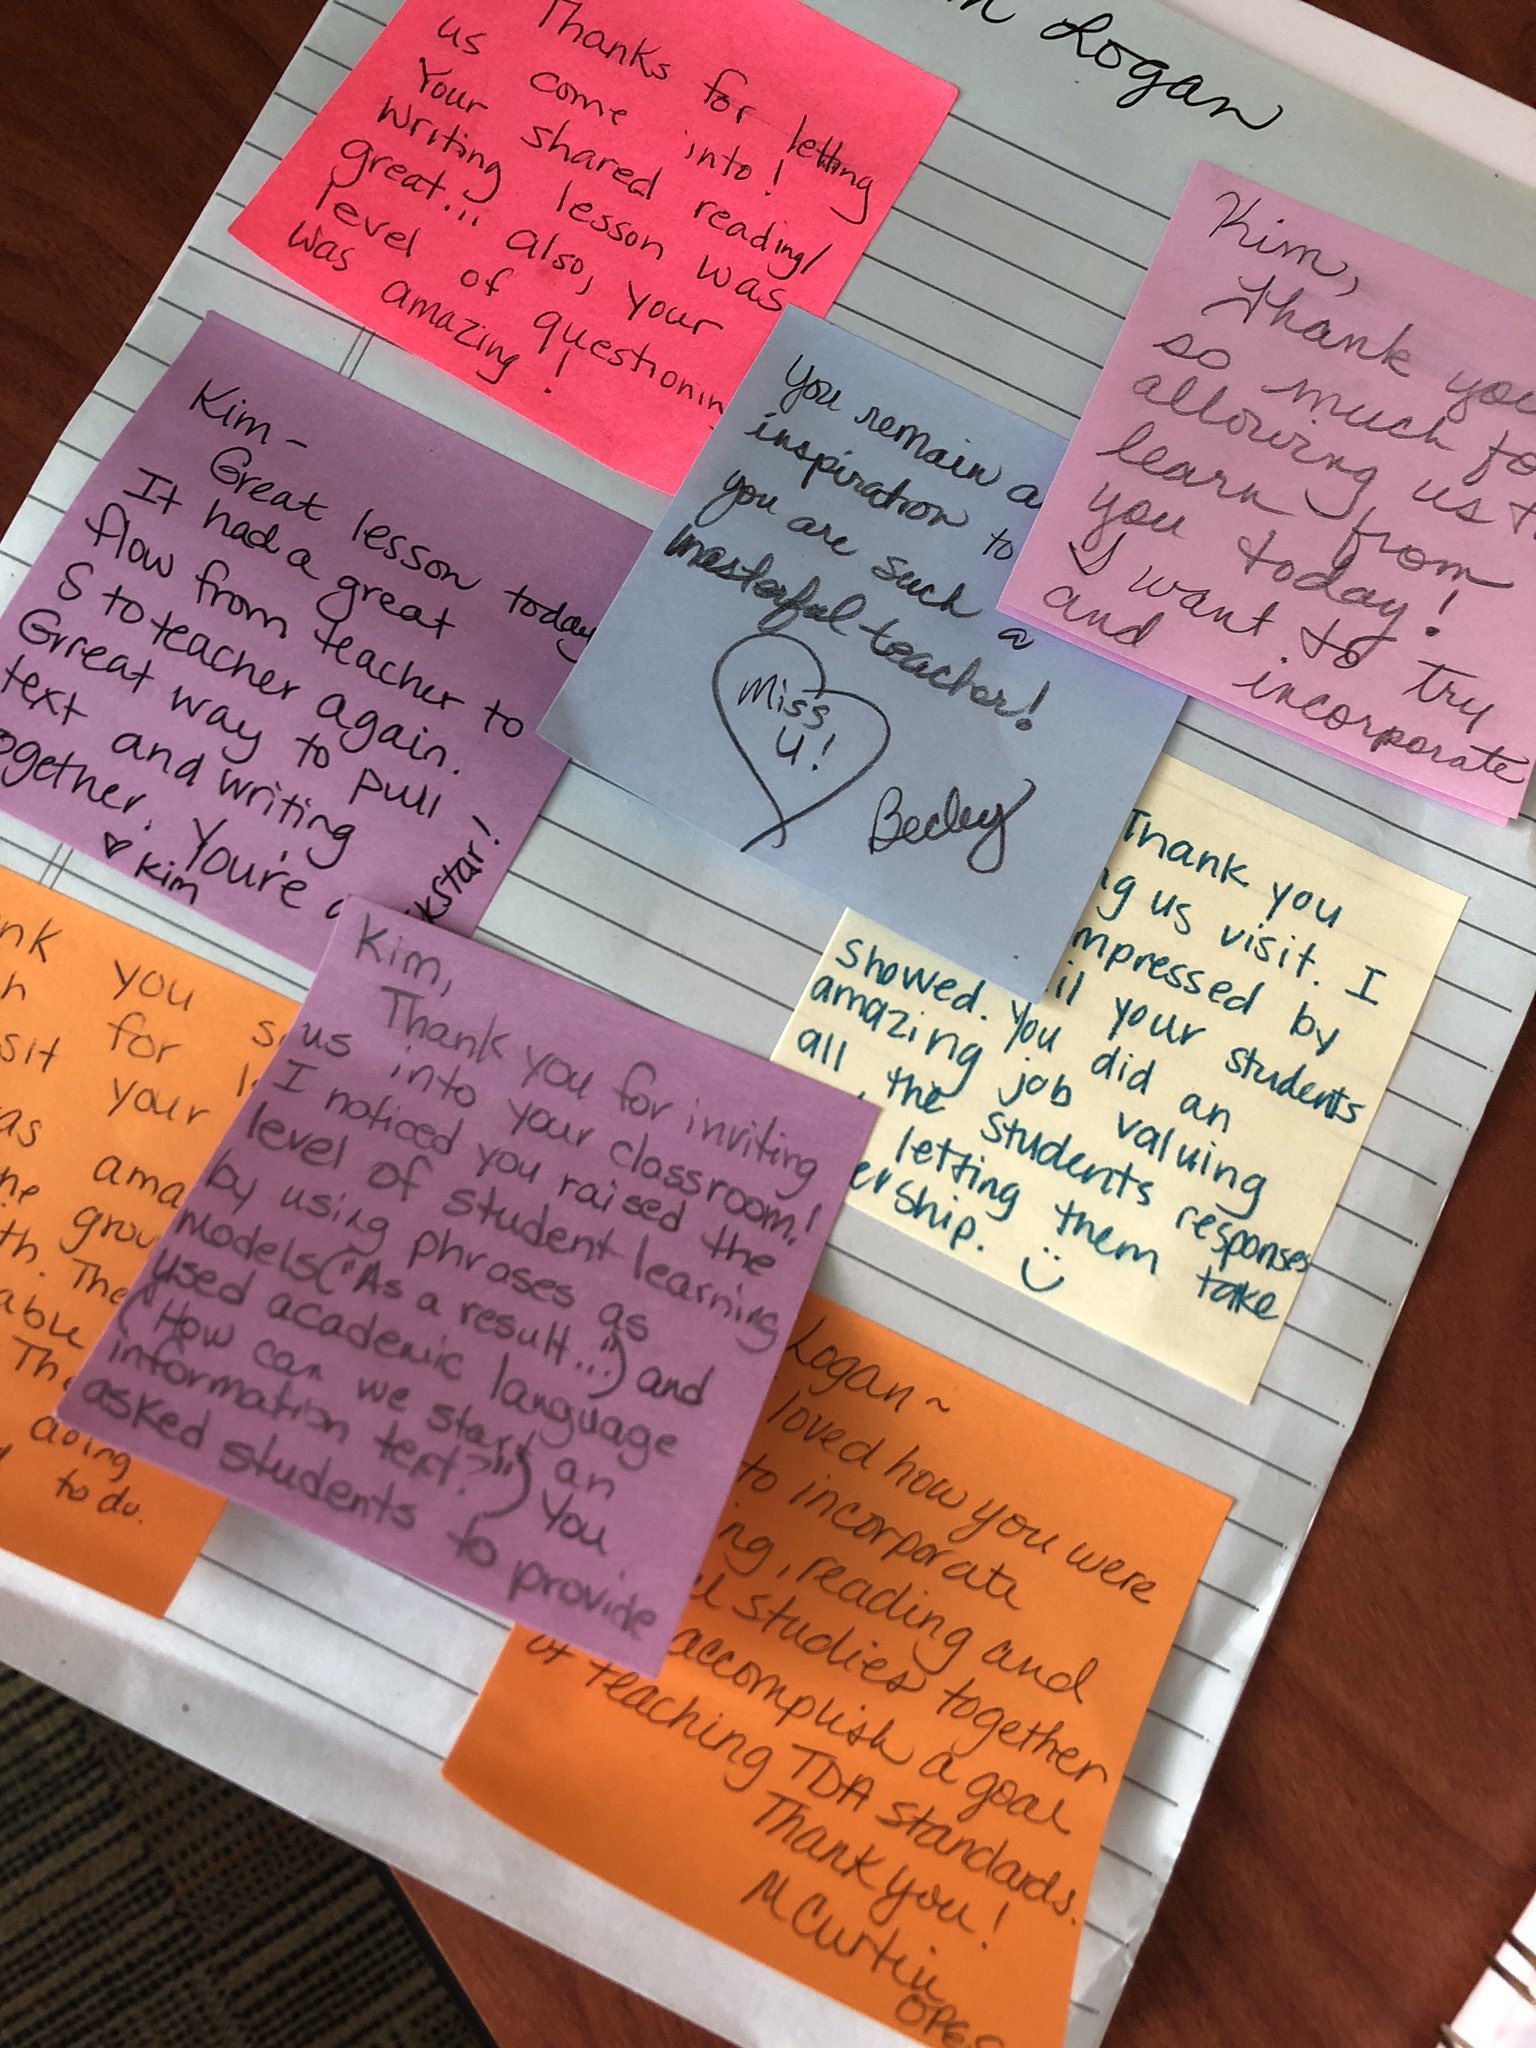 Logan
Thanks for letting
us come into!
Your shared reading/
writing lesson was
great... also, your
level of questioning
was amazing!
Kim,
Thank you
so much
allowing us
learn from
you today!
I want to try
and incorporate
You remain
inspiration to
you are such a
masterful teacher!
Miss
U!
Becky
Kim-
Great lesson today
It had a great
flow from teacher to
S to teacher again.
Grreat way to pull
text and writing
You're
♡ Kim
Thank you
us visit. I
by
your students
showed. You did an
amazing job valuing
all the students responses
letting them take
you
for
your
The
The
doing
to do.
Kim,
Thank you for inviting
us into your classroom!
I noticed you raised the
level of student learning
by using phrases as
models ("As a result...") and
used academic language
("How can we start an
information text?") You
asked students to provide
Logan~
loved how you were
to incorporate
reading and
studies together
accomplish a goal
of teaching TDA standards.
Thank you!
M Curtin